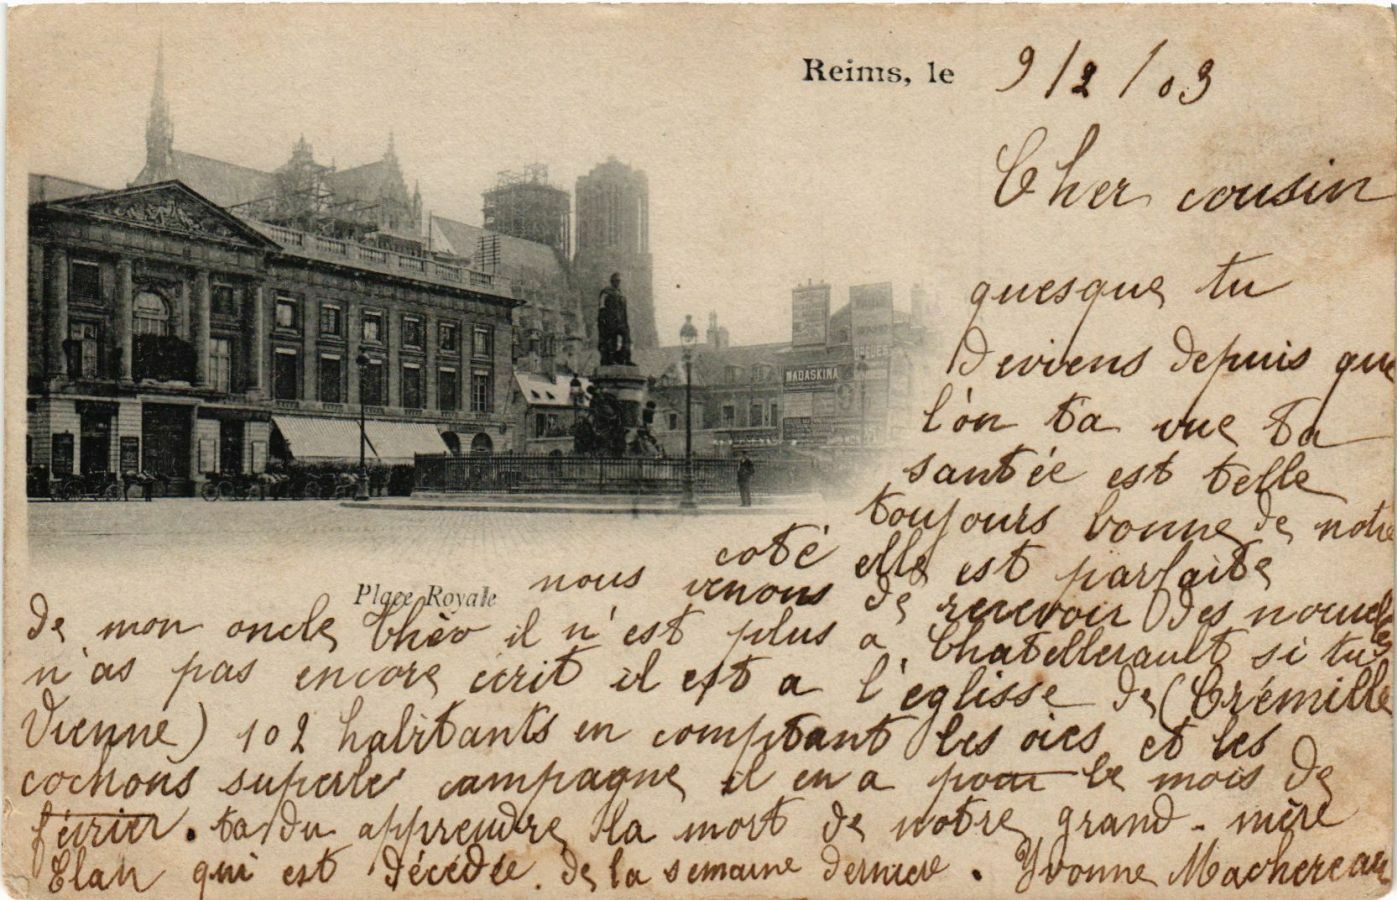 Reims, le 9/2/03
Cher cousin
quesque tu
deviens depuis que
l'on ta vue ta
santée est telle
toujours bonne de notre
coté elle est parfaite
nous venons de recevoir des nouvelles
Place Royale
MADASKINA
de mon oncle Théo il n'est plus a Chatellerault si tu
n'as pas encore écrit il est a l'eglisse de (Crémille
Vienne) 102 habitants en comptant les oies et les
cochons superbe campagne il en a pour le mois de
février. ta du apprendre la mort de notre grand-mère
Elan qui est décédée de la semaine derniere. Yvonne Machereau